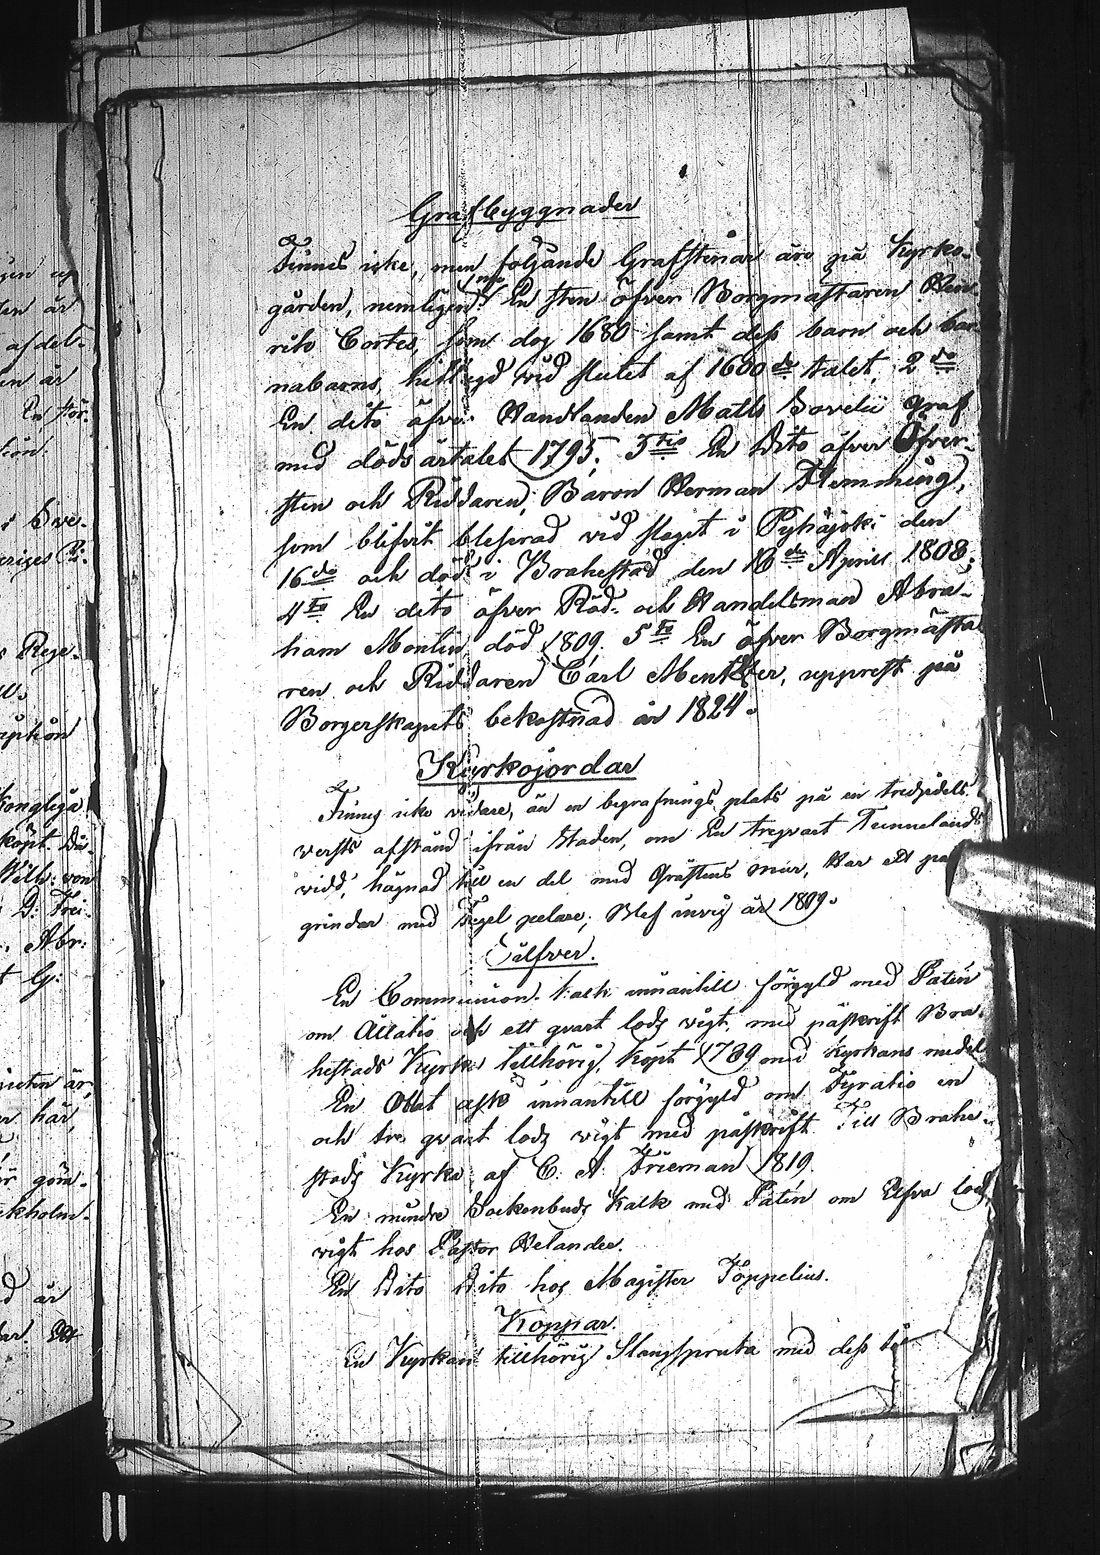 Grafbyggnader
Finnes icke, men följande Grafstenar äro på Kyrko-
gården, nemligen: 1mo En sten öfver Borgmästaren Hen-
rik Corte, som dog 1680 samt dess barn och bar-
nabarns, vid slutet af 1600de talet, 2do
En dito öfver Handlanden Matts Sovelii graf
med dödsårtalet 1795; 3tio En Dito öfver Öfver-
sten och Riddaren, Baron Herman Flemming,
som blifvit blesserad vid slaget i Pyhäjoki den
16de och död i Brahestad den 18de April 1808;
4to En dito öfver Råd- och Handelsman Abra-
ham Montin, död 1809. 5to En öfver Borgmästa
ren och Riddaren Carl Mentzer, upprest på
Borgerskapets bekostnad år 1824.
Kyrkojordar
Finnes icke vidare, än en begrafnings plats på en tredjedels
wersts afstånd ifrån Staden, om En trequart Tunnelands
vidd, hägnad till en del med Gråstens mur, Har ett par
grindar med Tegel pelare; Blef invigd år 1809.
Silfver.
En Communion. kalk innantill förgyld med Patén
om Åttatio och ett qvart lods vigt, med påskrift Bra-
hestads Kyrka tillhörig, köpt 1789 med kyrkans medel
En Oblat ask innantill förgyld om Fyratio en
och tre qvart lods vigt med påskrift Till Brahe-
stads Kyrka af C. A. Frieman 1819.
En mindre Sockenbuds Kalk med Patén om Elfva lods
vigt hos Pastor Helander.
En Dito Dito hos Magister Töppelius.
Koppar.
En Kyrkan tillhörig Slangspruta med dess
gen af
ten är
afdel-
en är
En för-
tion.
Sve-
eriges
Rege-
ription
Kongliga
köpt
Wilh: von
Abr:
er här,
ör göra-
ckholm.
d är